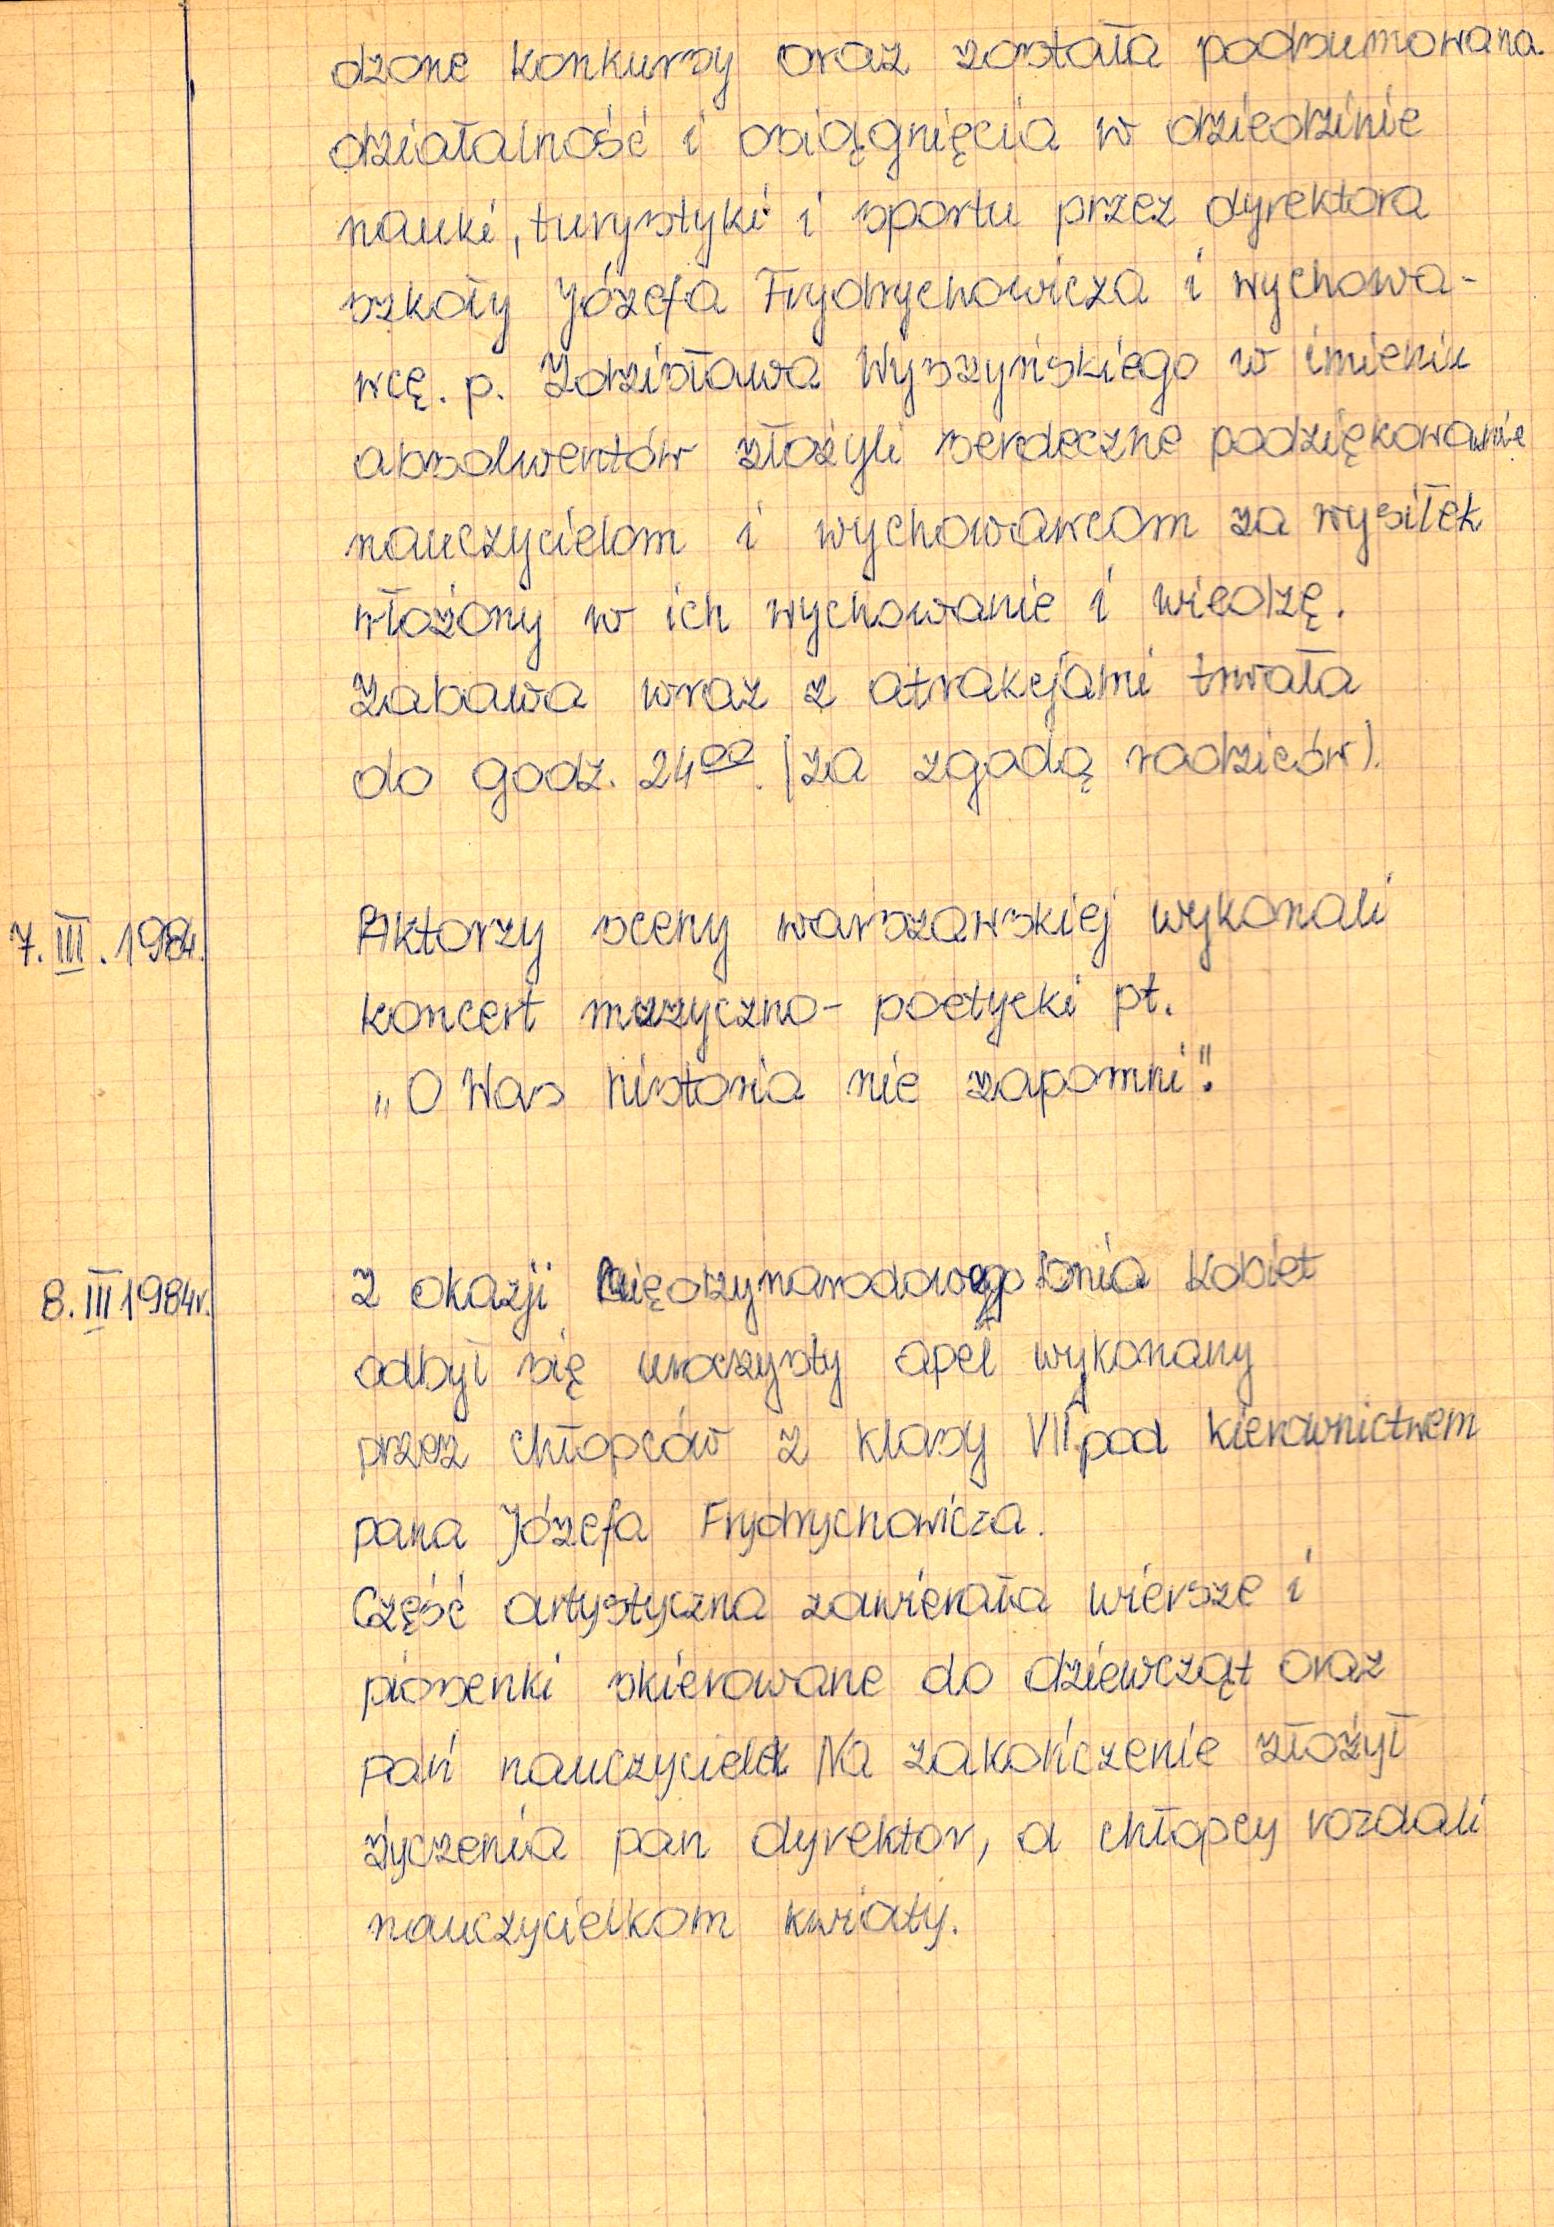 dzone konkursy oraz została podsumowana
działalność i osiągnięcia w dziedzinie
nauki, turystyki i sportu przez dyrektora
szkoły Józefa Frydrychowicza i wychowa-
wcę. p. Zdzisława Wyszyńskiego w imieniu
absolwentów złożyli serdeczne podziękowanie
nauczycielom i wychowawcom za wysiłek
włożony w ich wychowanie i wiedzę.
Zabawa wraz z atrakcjami trwała
do godz. 24ºº. (za zgodą rodziców).
7. III. 1984. Aktorzy sceny warszawskiej wykonali
koncert muzyczno-poetycki pt.
„O Was historia nie zapomni".
8. III 1984r. Z okazji Międzynarodowego Dnia Kobiet
odbył się uroczysty apel wykonany
przez chłopców z klasy VII pod kierownictwem
pana Józefa Frydrychowicza.
Część artystyczna zawierała wiersze i
piosenki skierowane do dziewcząt oraz
pań nauczycielek Na zakończenie złożył
życzenia pan dyrektor, a chłopcy rozdali
nauczycielkom kwiaty.